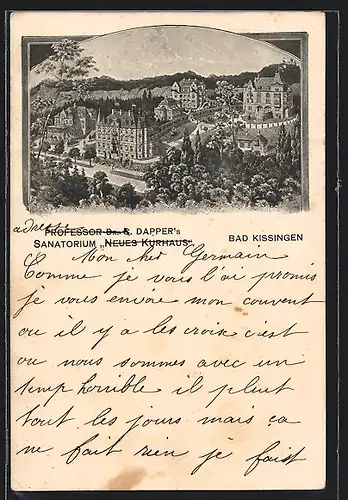 adresse
PROFESSOR DR. C. DAPPER's
SANATORIUM „NEUES KURHAUS". BAD KISSINGEN
Mon cher Germain
Comme je vous l'ai promis
je vous envoie mon couvent
ou il y a les croix c'est
ou nous sommes avec un
temp horrible il pleut
tout les jours mais ça
ne fait rien je fait